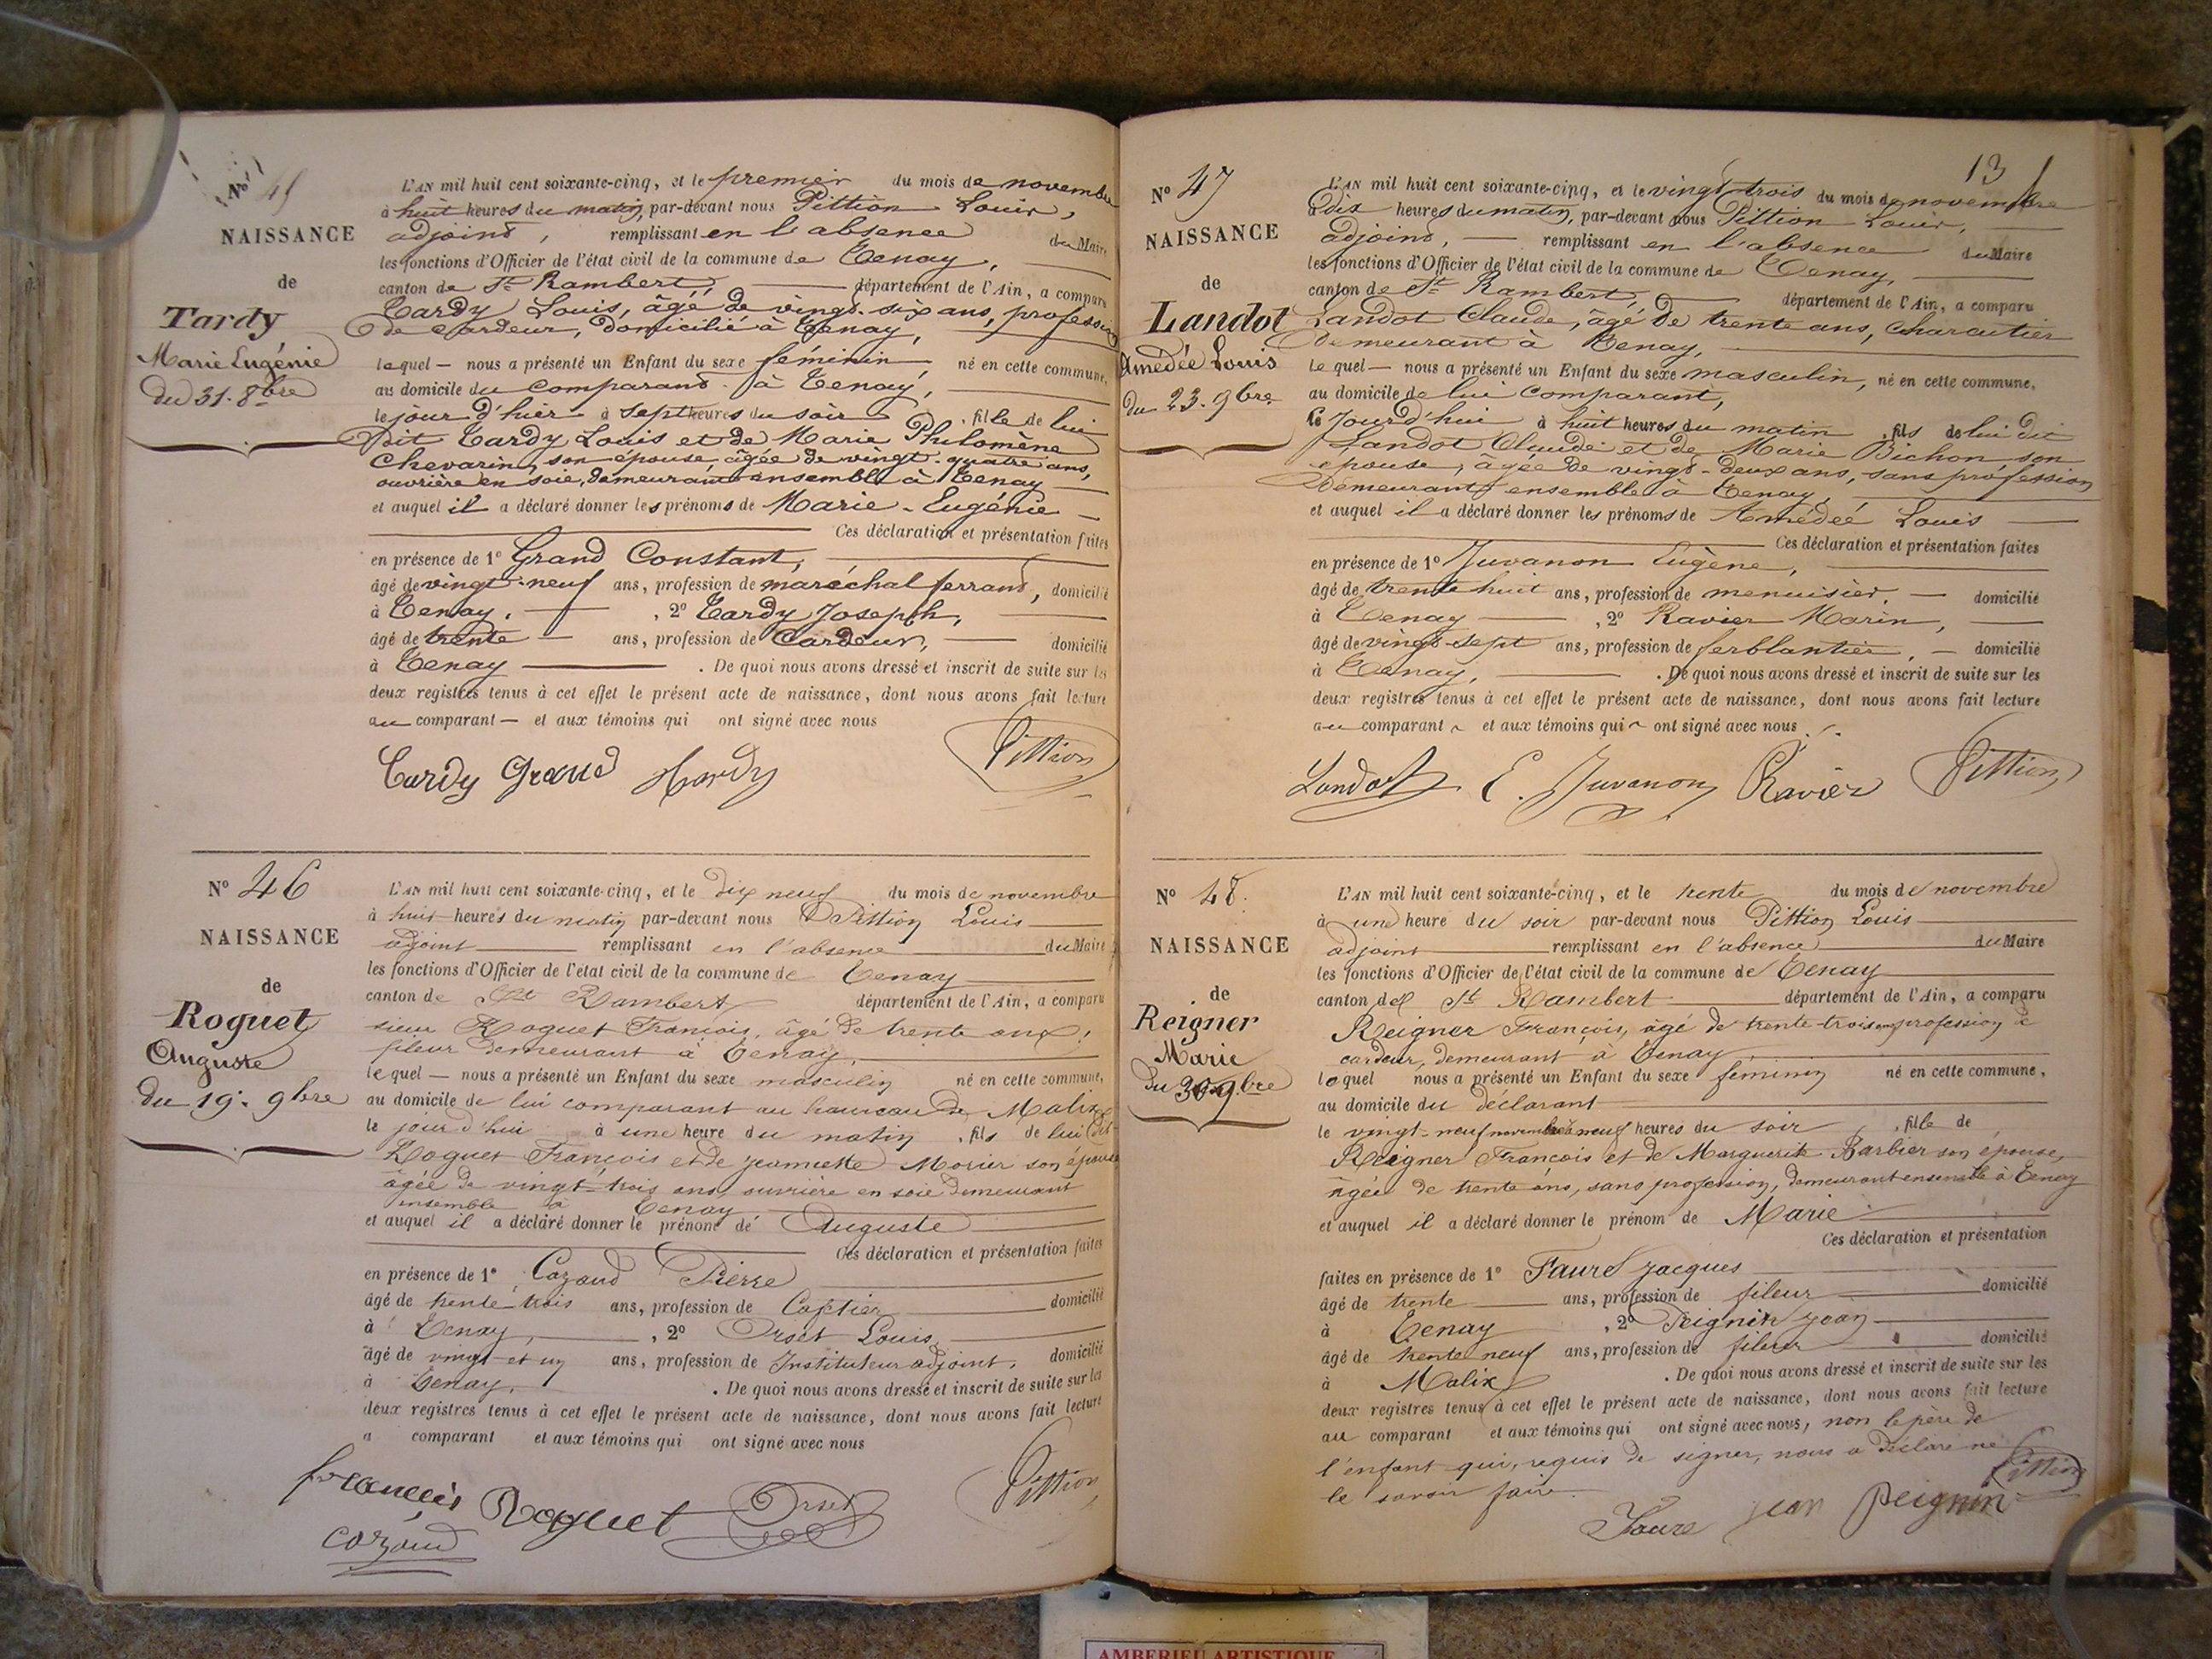 N° 45
NAISSANCE
de
Tardy
Marie Eugénie
du 31. 8bre
L'AN mil huit cent soixante-cinq, et le premier du mois de novembre
à huit heures du matin, par-devant nous Pittion Louis,
adjoint, remplissant en l'absence du Maire
les fonctions d'Officier de l'état civil de la commune de Tenay,
canton de St Rambert, département de l'Ain, a comparu
Tardy Louis, âgé de vingt-six ans, profession
de cardeur, domicilié à Tenay,
lequel — nous a présenté un Enfant du sexe féminin, né en cette commune,
au domicile du comparant à Tenay,
le jour d'hier à sept heures du soir, fille de lui
dit Tardy Louis et de Marie Philomène
Chevarin, son épouse âgée de vingt-quatre ans,
ouvrière en soie, demeurant ensemble à Tenay
et auquel il a déclaré donner les prénoms de Marie-Eugénie
Ces déclaration et présentation faites
en présence de 1° Grand Constant,
âgé de vingt-neuf ans, profession de maréchal ferrant, domicilié
à Tenay, 2° Tardy Joseph,
âgé de trente ans, profession de cardeur, domicilié
à Tenay. De quoi nous avons dressé et inscrit de suite sur les
deux registres tenus à cet effet le présent acte de naissance, dont nous avons fait lecture
au comparant — et aux témoins qui ont signé avec nous
Tardy Grand Tardy Pittion
N° 46
NAISSANCE
de
Roguet
Auguste
du 19. 9bre
L'AN mil huit cent soixante-cinq, et le dix neuf du mois de novembre
à huit heures du matin par-devant nous Pittion Louis
adjoint remplissant en l'absence du Maire
les fonctions d'Officier de l'état civil de la commune de Tenay
canton de St Rambert département de l'Ain, a comparu
sieur Roguet François, âgé de trente ans,
fileur demeurant à Tenay,
lequel — nous a présenté un Enfant du sexe masculin né en cette commune,
au domicile de lui comparant au hameau de Malix
le jour d'hui à une heure du matin, fils de lui dit
Roguet François et de Jeannette Morier son épouse
âgée de vingt-trois ans, ouvrière en soie demeurant
ensemble à Tenay
et auquel il a déclaré donner le prénom de Auguste
Ces déclaration et présentation faites
en présence de 1° Cozand Pierre
âgé de trente-trois ans, profession de domicilié
à Tenay, 2° Orset Louis,
âgé de vingt et un ans, profession de Instituteur adjoint, domicilié
à Tenay. De quoi nous avons dressé et inscrit de suite sur les
deux registres tenus à cet effet le présent acte de naissance, dont nous avons fait lecture
a comparant et aux témoins qui ont signé avec nous
françois Roguet Orset Pittion
cozand
13
N° 47
NAISSANCE
de
Landot
Amédée Louis
du 23. 9bre
L'AN mil huit cent soixante-cinq, et le vingt trois du mois de novembre
à dix heures du matin, par-devant nous Pittion Louis,
adjoint, — remplissant en l'absence du Maire
les fonctions d'Officier de l'état civil de la commune de Tenay,
canton de St Rambert, département de l'Ain, a comparu
Landot Claude, âgé de trente ans, charcutier
demeurant à Tenay,
lequel — nous a présenté un Enfant du sexe masculin, né en cette commune,
au domicile de lui comparant,
le jourd'hui à huit heures du matin, fils de lui dit
Landot Claude et de Marie Bichon, son
épouse, âgée de vingt-deux ans, sans profession
demeurant ensemble à Tenay,
et auquel il a déclaré donner les prénoms de Amédée Louis
Ces déclaration et présentation faites
en présence de 1° Juvanon Eugène,
âgé de trente huit ans, profession de menuisier, — domicilié
à Tenay, 2° Ravier Marin,
âgé de vingt-sept ans, profession de ferblantier, — domicilié
à Tenay, . De quoi nous avons dressé et inscrit de suite sur les
deux registres tenus à cet effet le présent acte de naissance, dont nous avons fait lecture
au comparant et aux témoins qui ont signé avec nous.
Landot E. Juvanon Ravier Pittion
N° 48.
NAISSANCE
de
Reigner
Marie
du 30 9bre
L'AN mil huit cent soixante-cinq, et le trente du mois de novembre
à une heure du soir par-devant nous Pittion Louis
adjoint remplissant en l'absence du Maire
les fonctions d'Officier de l'état civil de la commune de Tenay
canton de St Rambert département de l'Ain, a comparu
Reigner François, âgé de trente-trois ans profession de
cardeur, demeurant à Tenay
lequel nous a présenté un Enfant du sexe féminin né en cette commune,
au domicile du déclarant
le vingt-neuf novembre à neuf heures du soir, fille de
Reigner François et de Marguerite Barbier son épouse,
âgée de trente ans, sans profession, demeurant ensemble à Tenay
et auquel il a déclaré donner le prénom de Marie
Ces déclaration et présentation
faites en présence de 1° Faure Jacques
âgé de trente ans, profession de fileur domicilié
à Tenay, 2° Peignin Jean
âgé de trente neuf ans, profession de fileur domicilié
à Malix. De quoi nous avons dressé et inscrit de suite sur les
deux registres tenus à cet effet le présent acte de naissance, dont nous avons fait lecture
au comparant et aux témoins qui ont signé avec nous, non le père de
l'enfant qui, requis de signer, nous a déclaré ne
le savoir faire. Pittion
Faure jean peignin
AMBERIEU ARTISTIQUE